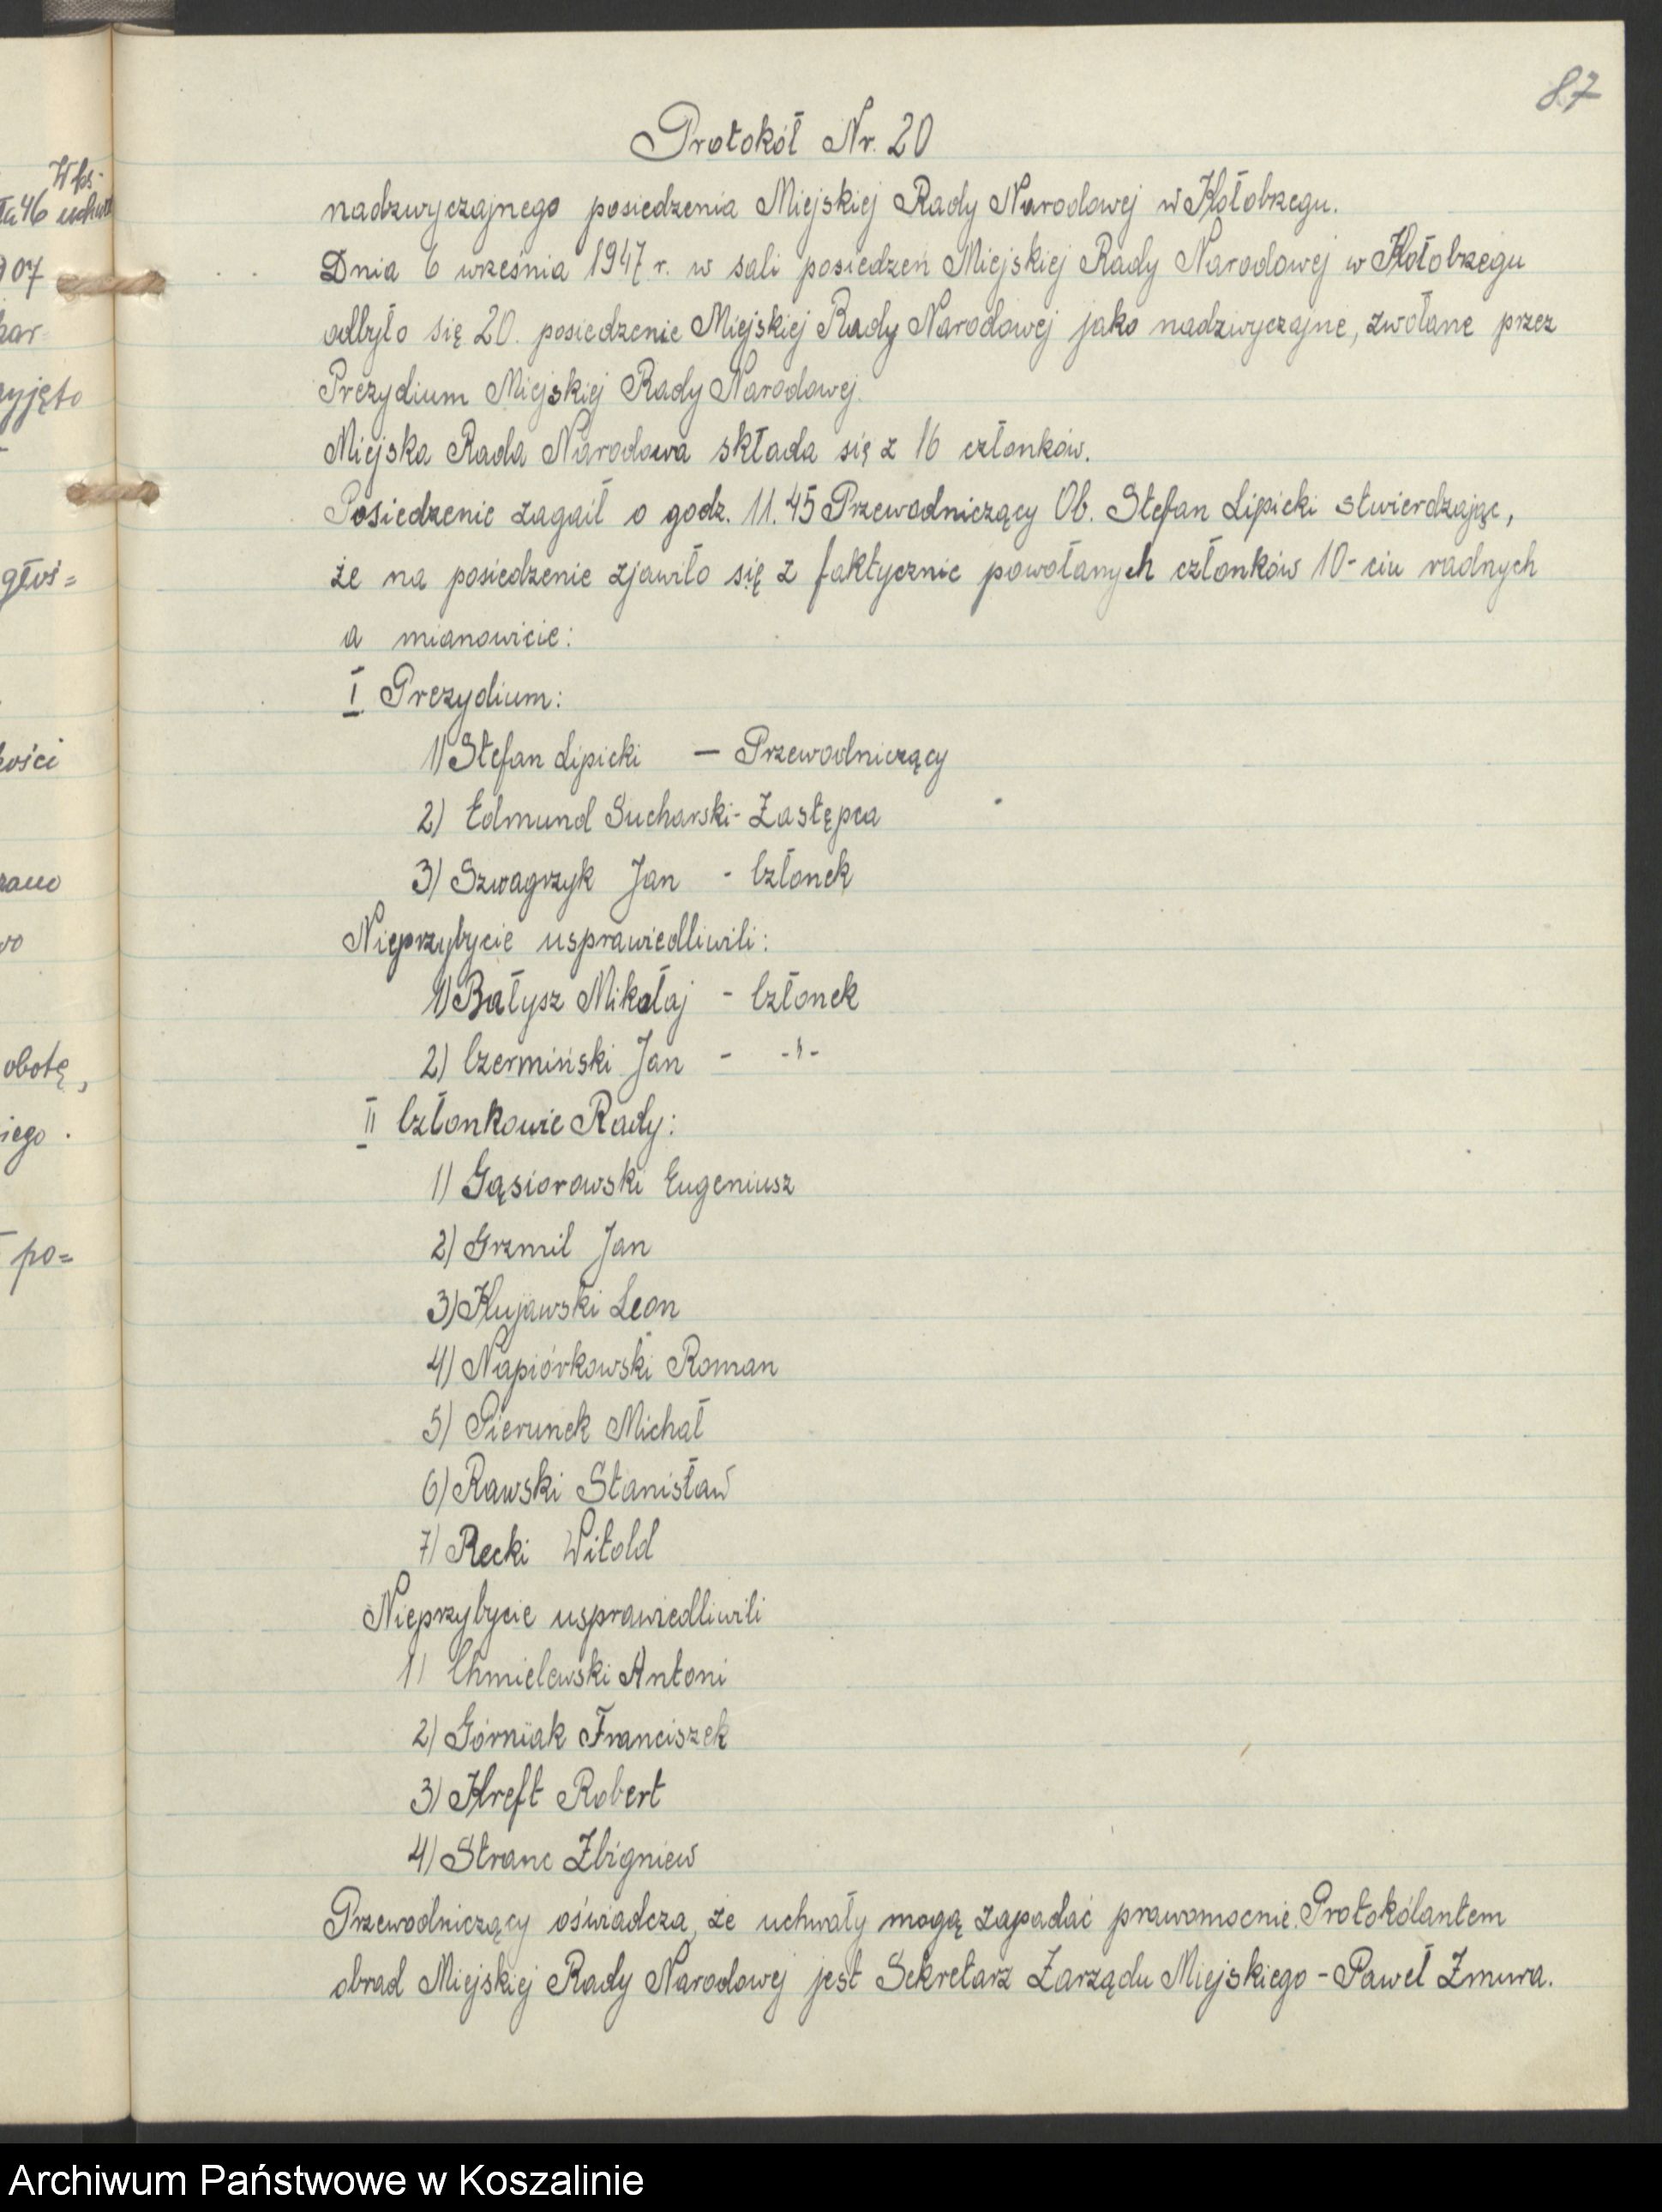 87
Protokół Nr. 20
nadzwyczajnego posiedzenia Miejskiej Rady Narodowej w Kołobrzegu.
Dnia 6 września 1947 r. w sali posiedzeń Miejskiej Rady Narodowej w Kołobrzegu
odbyło się 20. posiedzenie Miejskiej Rady Narodowej jako nadzwyczajne, zwołane przez
Prezydium Miejskiej Rady Narodowej.
Miejska Rada Narodowa składa się z 16 członków.
Posiedzenie zagaił o godz. 11.45 Przewodniczący Ob. Stefan Lipicki stwierdzając,
że na posiedzenie zjawiło się z faktycznie powołanych członków 10-ciu radnych
a mianowicie:
I Prezydium:
1) Stefan Lipicki — Przewodniczący
2) Edmund Sucharski - Zastępca
3) Szwagrzyk Jan - Członek
Nieprzybycie usprawiedliwili:
1) Bałysz Mikołaj - Członek
2) Czermiński Jan - -"-
II Członkowie Rady:
1) Gąsiorowski Eugeniusz
2) Grzmil Jan
3) Kujawski Leon
4) Napiórkowski Roman
5) Pierunek Michał
6) Rawski Stanisław
7) Recki Witold
Nieprzybycie usprawiedliwili
1) Chmielewski Antoni
2) Górniak Franciszek
3) Kreft Robert
4) Stranc Zbigniew
Przewodniczący oświadcza, że uchwały mogą zapadać prawomocnie. Protokólantem
obrad Miejskiej Rady Narodowej jest Sekretarz Zarządu Miejskiego - Paweł Zmura.
Archiwum Państwowe w Koszalinie